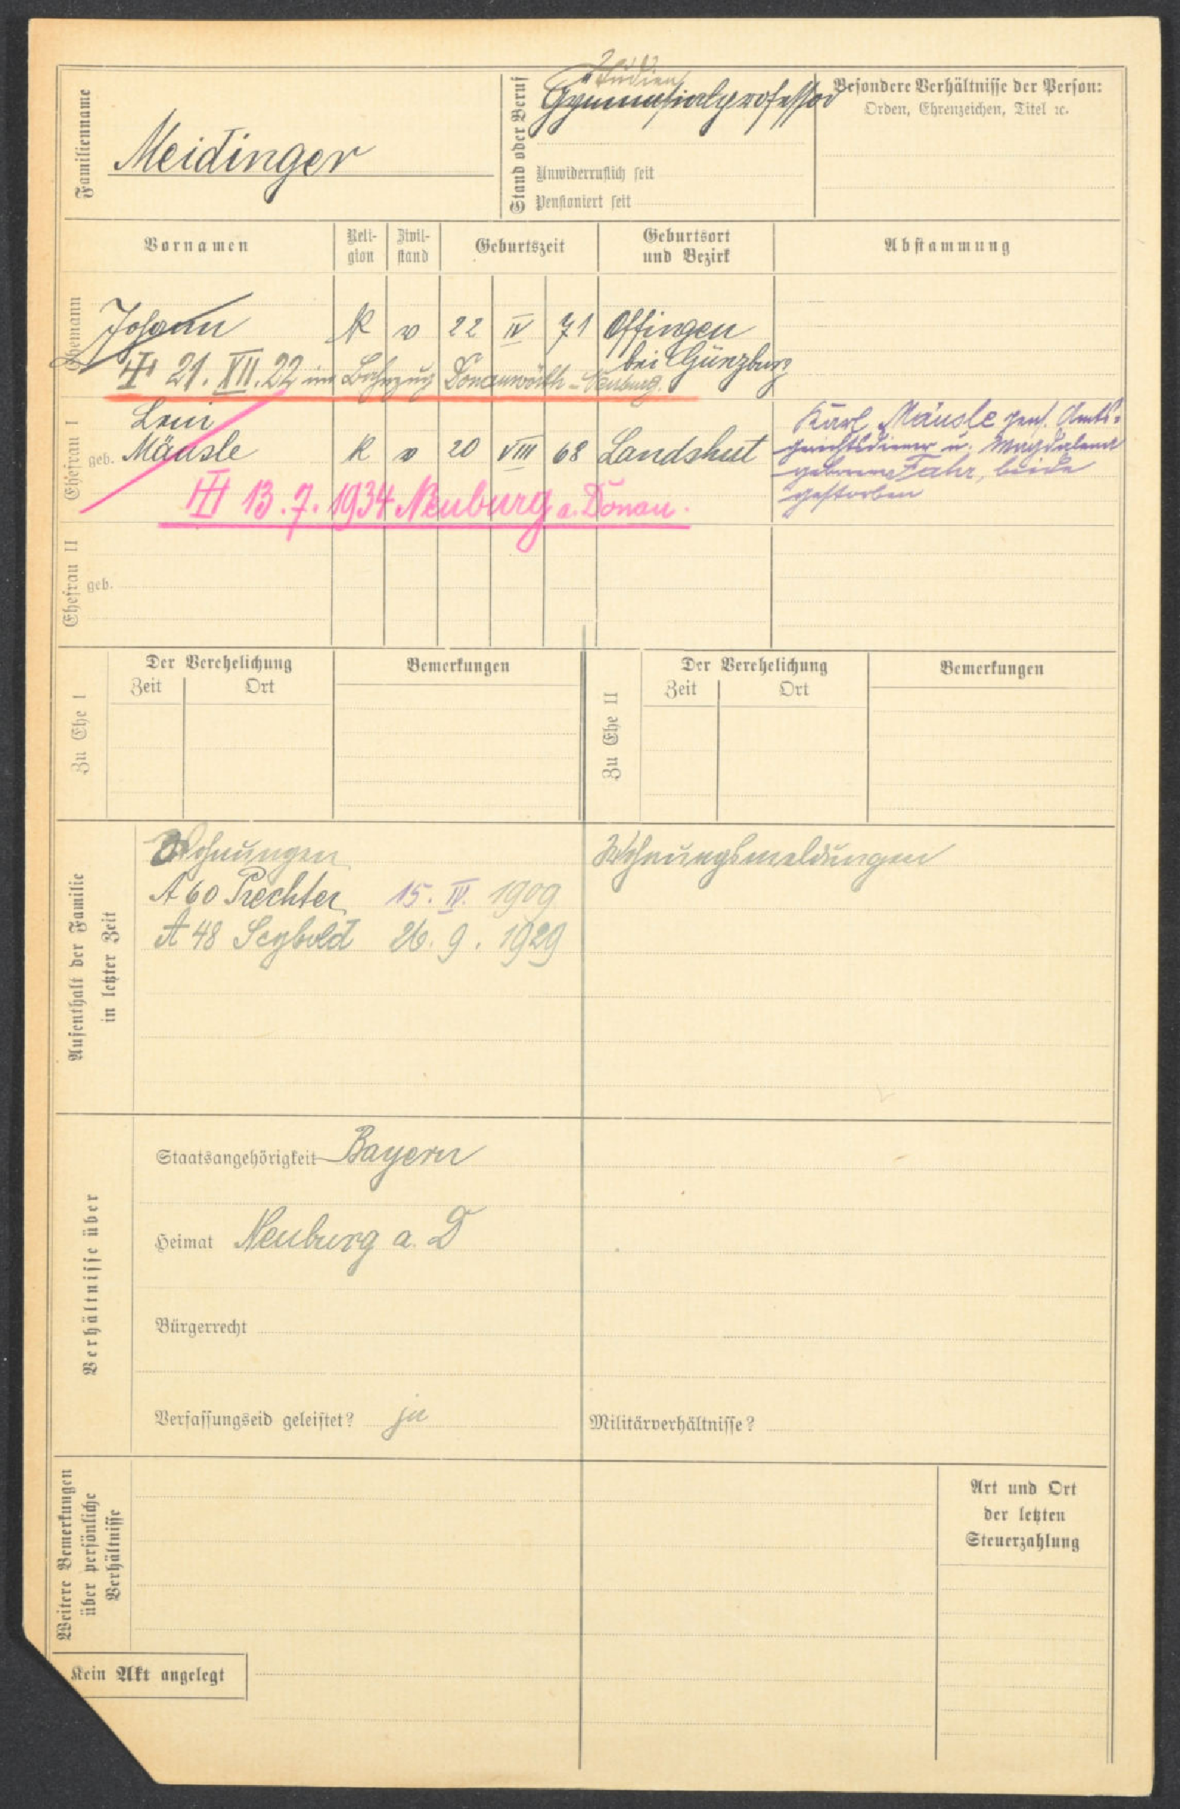 Familienname
Meidinger
Stand oder Beruf
Studien
Gymnasialprofessor
Unwiderruflich seit
Pensioniert seit
Besondere Verhältnisse der Person:
Orden, Ehrenzeichen, Titel ꝛc.
Vornamen
Reli-
gion
Zivil-
stand
Geburtszeit
Geburtsort
und Bezirk
Abstammung
Ehemann
Johann K v 22 IV 71 Offingen
bei Günzburg
21. XII. 22 im Bahnzug Donauwörth-Neuburg.
Ehefrau I
Leni
geb. Mäusle K v 20 VIII 68 Landshut
Karl Mäusle gew. Amts-
gerichtsdiener u. Magdalena
geborene Fahr, beide
gestorben
13. 7. 1934 Neuburg a. Donau.
Ehefrau II
geb.
Zu Ehe I
Der Verehelichung
Zeit Ort
Bemerkungen
Zu Ehe II
Der Verehelichung
Zeit Ort
Bemerkungen
Aufenthalt der Familie
in letzter Zeit
Wohnungen
A 60 Prechter 15. IV. 1909
A 48 Seybold 26. 9. 1929
Wohnungsmeldungen
Verhältnisse über
Staatsangehörigkeit Bayern
Heimat Neuburg a. D
Bürgerrecht
Verfassungseid geleistet? ja
Militärverhältnisse?
Weitere Bemerkungen
über persönliche
Verhältnisse
Art und Ort
der letzten
Steuerzahlung
Kein Akt angelegt